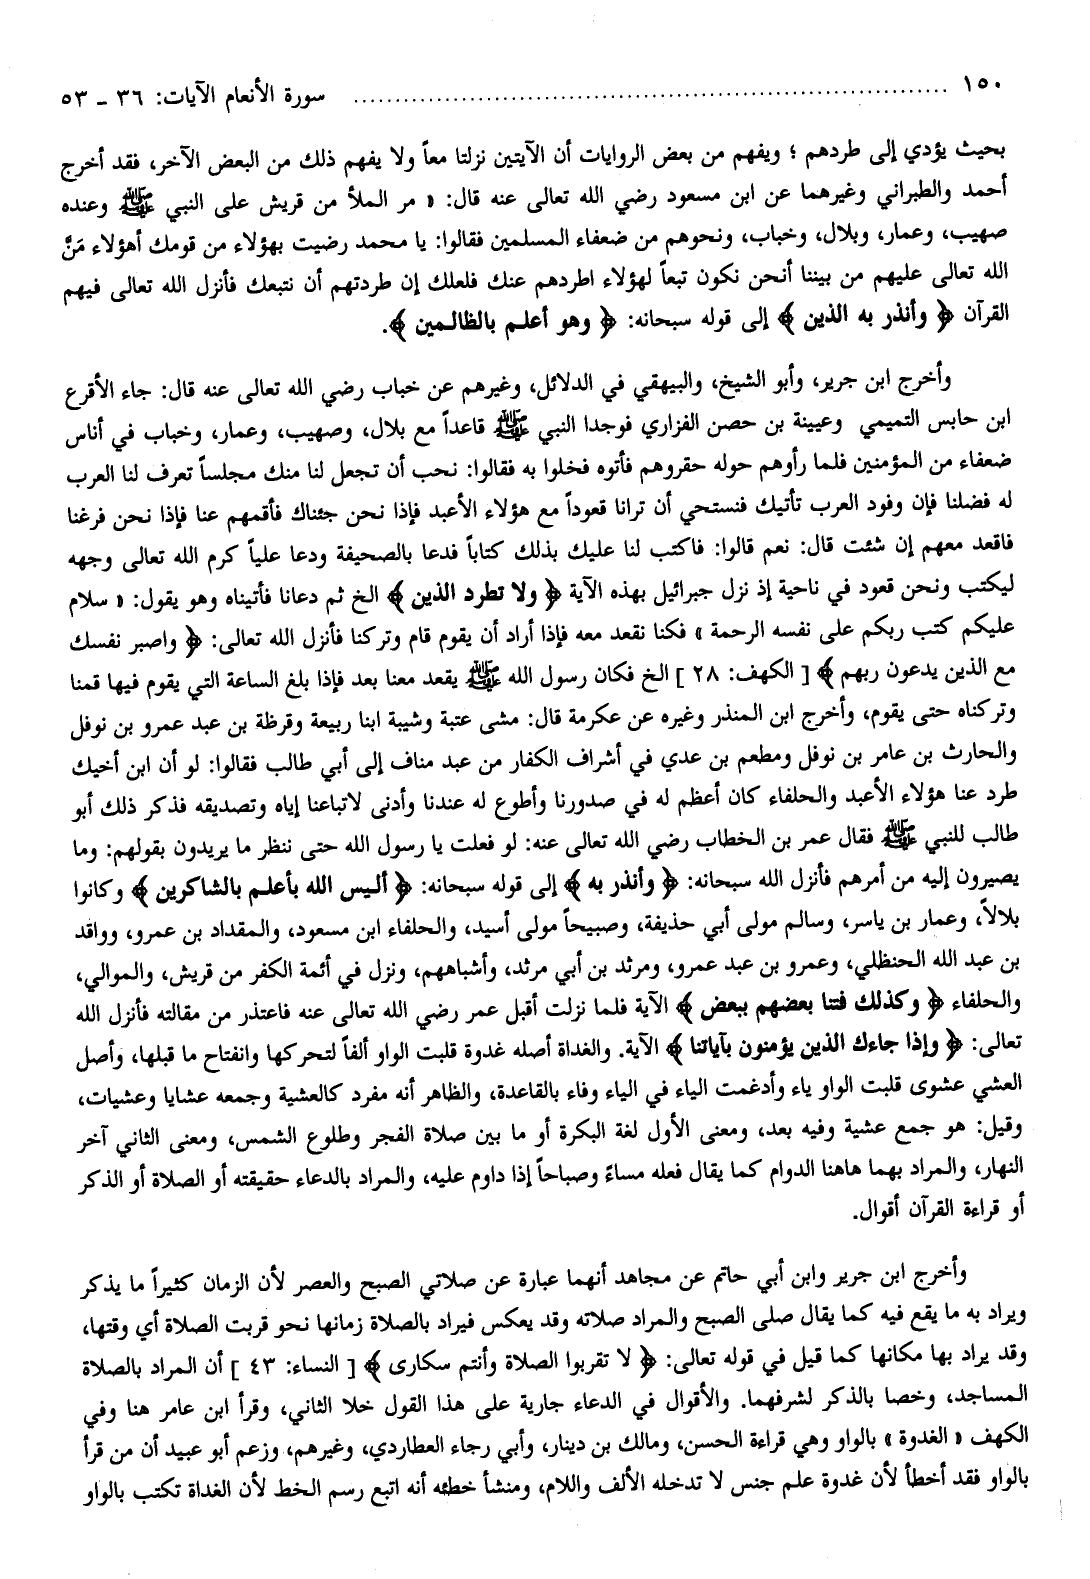 ١٥٠ ........................................................................ سورة الأنعام الآيات: ٣٦ ـ ٥٣
بحيث يؤدي إلى طردهم ؛ ويفهم من بعض الروايات أن الآيتين نزلتا معاً ولا يفهم ذلك من البعض الآخر، فقد أخرج
أحمد والطبراني وغيرهما عن ابن مسعود رضي الله تعالى عنه قال: « مر الملأ من قريش على النبي ﷺ وعنده
صهيب، وعمار، وبلال، وخباب، ونحوهم من ضعفاء المسلمين فقالوا: يا محمد رضيت بهؤلاء من قومك أهؤلاء مَنَّ
الله تعالى عليهم من بيننا أنحن نكون تبعاً لهؤلاء اطردهم عنك فلعلك إن طردتهم أن نتبعك فأنزل الله تعالى فيهم
القرآن ﴿ وأنذر به الذين ﴾ إلى قوله سبحانه: ﴿ وهو أعلم بالظالمين ﴾.
وأخرج ابن جرير، وأبو الشيخ، والبيهقي في الدلائل، وغيرهم عن خباب رضي الله تعالى عنه قال: جاء الأقرع
ابن حابس التميمي وعيينة بن حصن الفزاري فوجدا النبي ﷺ قاعداً مع بلال، وصهيب، وعمار، وخباب في أناس
ضعفاء من المؤمنين فلما رأوهم حوله حقروهم فأتوه فخلوا به فقالوا: نحب أن تجعل لنا منك مجلساً تعرف لنا العرب
له فضلنا فإن وفود العرب تأتيك فنستحي أن ترانا قعوداً مع هؤلاء الأعبد فإذا نحن جئناك فأقمهم عنا فإذا نحن فرغنا
فاقعد معهم إن شئت قال: نعم قالوا: فاكتب لنا عليك بذلك كتاباً فدعا بالصحيفة ودعا علياً كرم الله تعالى وجهه
ليكتب ونحن قعود في ناحية إذ نزل جبرائيل بهذه الآية ﴿ ولا تطرد الذين ﴾ الخ ثم دعانا فأتيناه وهو يقول: « سلام
عليكم كتب ربكم على نفسه الرحمة » فكنا نقعد معه فإذا أراد أن يقوم قام وتركنا فأنزل الله تعالى: ﴿ واصبر نفسك
مع الذين يدعون ربهم ﴾ [ الكهف: ٢٨ ] الخ فكان رسول الله ﷺ يقعد معنا بعد فإذا بلغ الساعة التي يقوم فيها قمنا
وتركناه حتى يقوم، وأخرج ابن المنذر وغيره عن عكرمة قال: مشى عتبة وشيبة ابنا ربيعة وقرظة بن عبد عمرو بن نوفل
والحارث بن عامر بن نوفل ومطعم بن عدي في أشراف الكفار من عبد مناف إلى أبي طالب فقالوا: لو أن ابن أخيك
طرد عنا هؤلاء الأعبد والحلفاء كان أعظم له في صدورنا وأطوع له عندنا وأدنى لاتباعنا إياه وتصديقه فذكر ذلك أبو
طالب للنبي ﷺ فقال عمر بن الخطاب رضي الله تعالى عنه: لو فعلت يا رسول الله حتى ننظر ما يريدون بقولهم: وما
يصيرون إليه من أمرهم فأنزل الله سبحانه: ﴿ وأنذر به ﴾ إلى قوله سبحانه: ﴿ أليس الله بأعلم بالشاكرين ﴾ وكانوا
بلالاً، وعمار بن ياسر، وسالم مولى أبي حذيفة، وصبيحاً مولى أسيد، والحلفاء ابن مسعود، والمقداد بن عمرو، وواقد
بن عبد الله الحنظلي، وعمرو بن عبد عمرو، ومرثد بن أبي مرثد، وأشباههم، ونزل في أئمة الكفر من قريش، والموالي،
والحلفاء ﴿ وكذلك فتنا بعضهم ببعض ﴾ الآية فلما نزلت أقبل عمر رضي الله تعالى عنه فاعتذر من مقالته فأنزل الله
تعالى: ﴿ وإذا جاءك الذين يؤمنون بآياتنا ﴾ الآية. والغداة أصله غدوة قلبت الواو ألفاً لتحركها وانفتاح ما قبلها، وأصل
العشي عشوى قلبت الواو ياء وأدغمت الياء في الياء وفاء بالقاعدة، والظاهر أنه مفرد كالعشية وجمعه عشايا وعشيات،
وقيل: هو جمع عشية وفيه بعد، ومعنى الأول لغة البكرة أو ما بين صلاة الفجر وطلوع الشمس، ومعنى الثاني آخر
النهار، والمراد بهما هاهنا الدوام كما يقال فعله مساءً وصباحاً إذا داوم عليه، والمراد بالدعاء حقيقته أو الصلاة أو الذكر
أو قراءة القرآن أقوال.
وأخرج ابن جرير وابن أبي حاتم عن مجاهد أنهما عبارة عن صلاتي الصبح والعصر لأن الزمان كثيراً ما يذكر
ويراد به ما يقع فيه كما يقال صلى الصبح والمراد صلاته وقد يعكس فيراد بالصلاة زمانها نحو قربت الصلاة أي وقتها،
وقد يراد بها مكانها كما قيل في قوله تعالى: ﴿ لا تقربوا الصلاة وأنتم سكارى ﴾ [ النساء: ٤٣ ] أن المراد بالصلاة
المساجد، وخصا بالذكر لشرفهما. والأقوال في الدعاء جارية على هذا القول خلا الثاني، وقرأ ابن عامر هنا وفي
الكهف « الغدوة » بالواو وهي قراءة الحسن، ومالك بن دينار، وأبي رجاء العطاردي، وغيرهم، وزعم أبو عبيد أن من قرأ
بالواو فقد أخطأ لأن غدوة علم جنس لا تدخله الألف واللام، ومنشأ خطئه أنه اتبع رسم الخط لأن الغداة تكتب بالواو